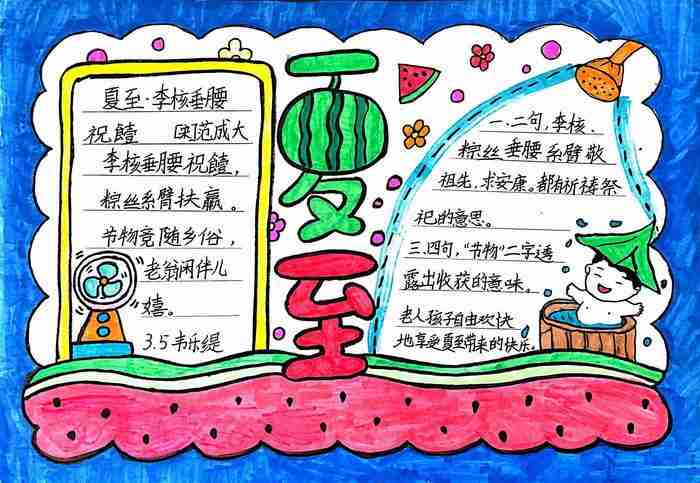 夏至·李核垂腰
祝饐 [宋]范成大
李核垂腰祝饐，
粽丝系臂扶羸。
节物竞随乡俗，
老翁闲伴儿
嬉。
3.5韦乐缇
夏至
一、二句，李核、
粽丝垂腰系臂敬
祖先，求安康。都有祈祷祭
祀的意思。
三、四句，"节物"二字透
露出收获的意味。
老人孩子自由欢快
地享受夏至带来的快乐。